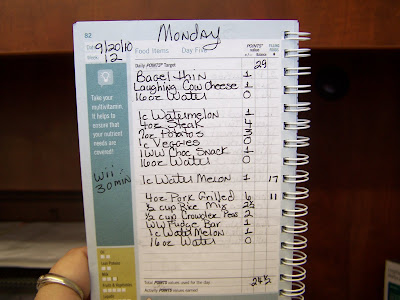 Monday
82
Date 9/20/10
Week 12
Food Items Day Five
POINTS® value
Daily POINTS® Target 29
Bagel thin 1
Laughing Cow Cheese 1
16oz Water 0
1c Watermelon 1
4oz Steak
7oz Potatos 3
1c Veggies 0
1 WW Choc Snack 1
16oz Water 0
1c Water Melon 1 17
4oz Pork Grilled 6 11
½ cup Rice Mix 2½
½ cup Crowder Peas 2
WW Fudge Bar 1
1c Water Melon 1
16oz Water 0
Take your
multivitamin.
It helps to
ensure that
your nutrient
needs are
covered!
Wii
30 min
Total POINTS values used for the day 24½
Activity POINTS values earned